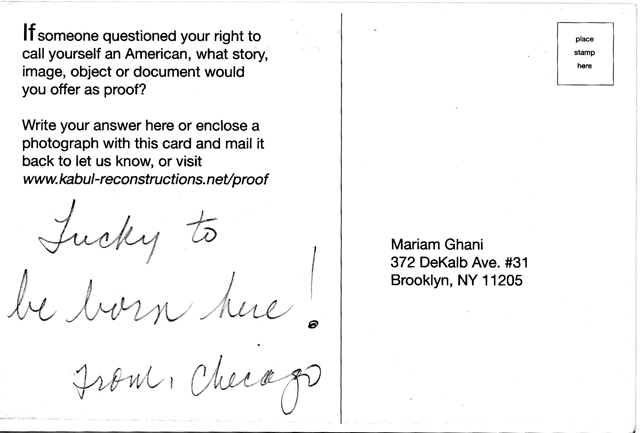 If someone questioned your right to
call yourself an American, what story,
image, object or document would
you offer as proof?
Write your answer here or enclose a
photograph with this card and mail it
back to let us know, or visit
www.kabul-reconstructions.net/proof
Lucky to
be born here!
From, Chicago
place
stamp
here
Mariam Ghani
372 DeKalb Ave. #31
Brooklyn, NY 11205